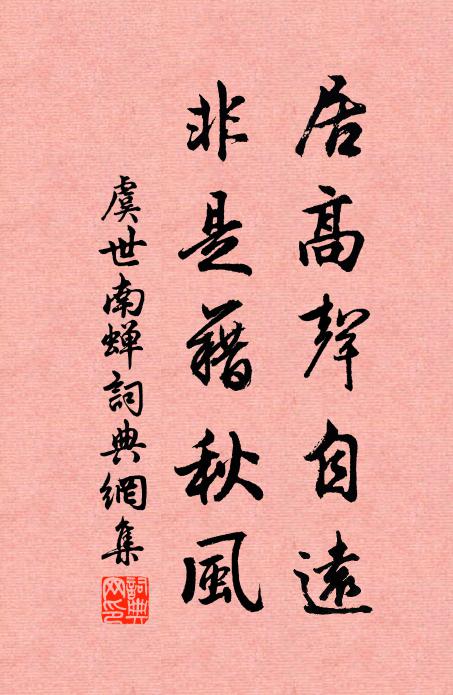 居高聲自遠
非是藉秋風
虞世南蟬詞典網集
詞典網印